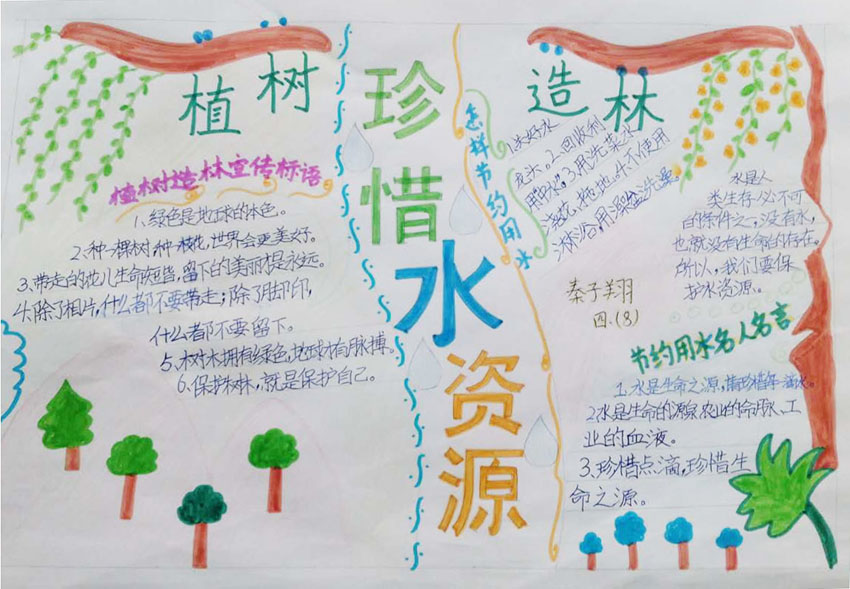 植树
植树造林宣传标语
1、绿色是地球的本色。
2、种一棵树,种一枝花,世界会更美好。
3、带走的花儿生命短暂,留下的美丽是永远。
4、除了相片,什么都不要带走;除了脚印,
什么都不要留下。
5、树木拥有绿色,地球才有脉搏。
6、保护树林,就是保护自己。
珍惜水资源
怎样节约用水
造林
1.关好水
龙头、2.回收利
用"中水"。3.用洗菜水
浇花、拖地。4.不使用
淋浴用澡盆洗澡。
水是人
类生存必不可
的条件之一,没有水,
也就没有生命的存在。
所以,我们要保
护水资源。
秦子翔
四.(8)
节约用水名人名言
1.水是生命之源,请珍惜每一滴水。
2.水是生命的源泉、农业的命用水、工
业的血液。
3.珍惜点滴,珍惜生
命之源。